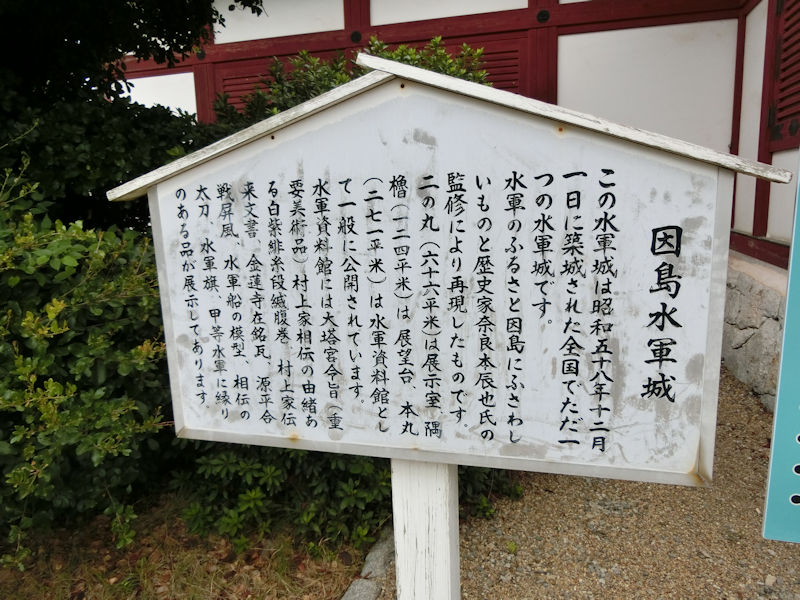 因島水軍城
この水軍城は昭和五十八年十二月
一日に築城された全国でただ一
つの水軍城です。
水軍のふるさと因島にふさわし
いものと歴史家奈良本辰也氏の
監修により再現したものです。
二の丸(六十六平米)は展示室、隅
櫓(一二四平米)は、展望台、本丸
(二七一平米)は水軍資料館とし
て一般に公開されています。
水軍資料館には大塔宮令旨(重
要美術品)村上家相伝の由緒あ
る白紫緋糸段縅腹巻、村上家伝
来文書、金蓮寺在銘瓦、源平合
戦屏風、水軍船の模型、相伝の
太刀、水軍旗、甲等水軍に縁り
のある品が展示してあります。